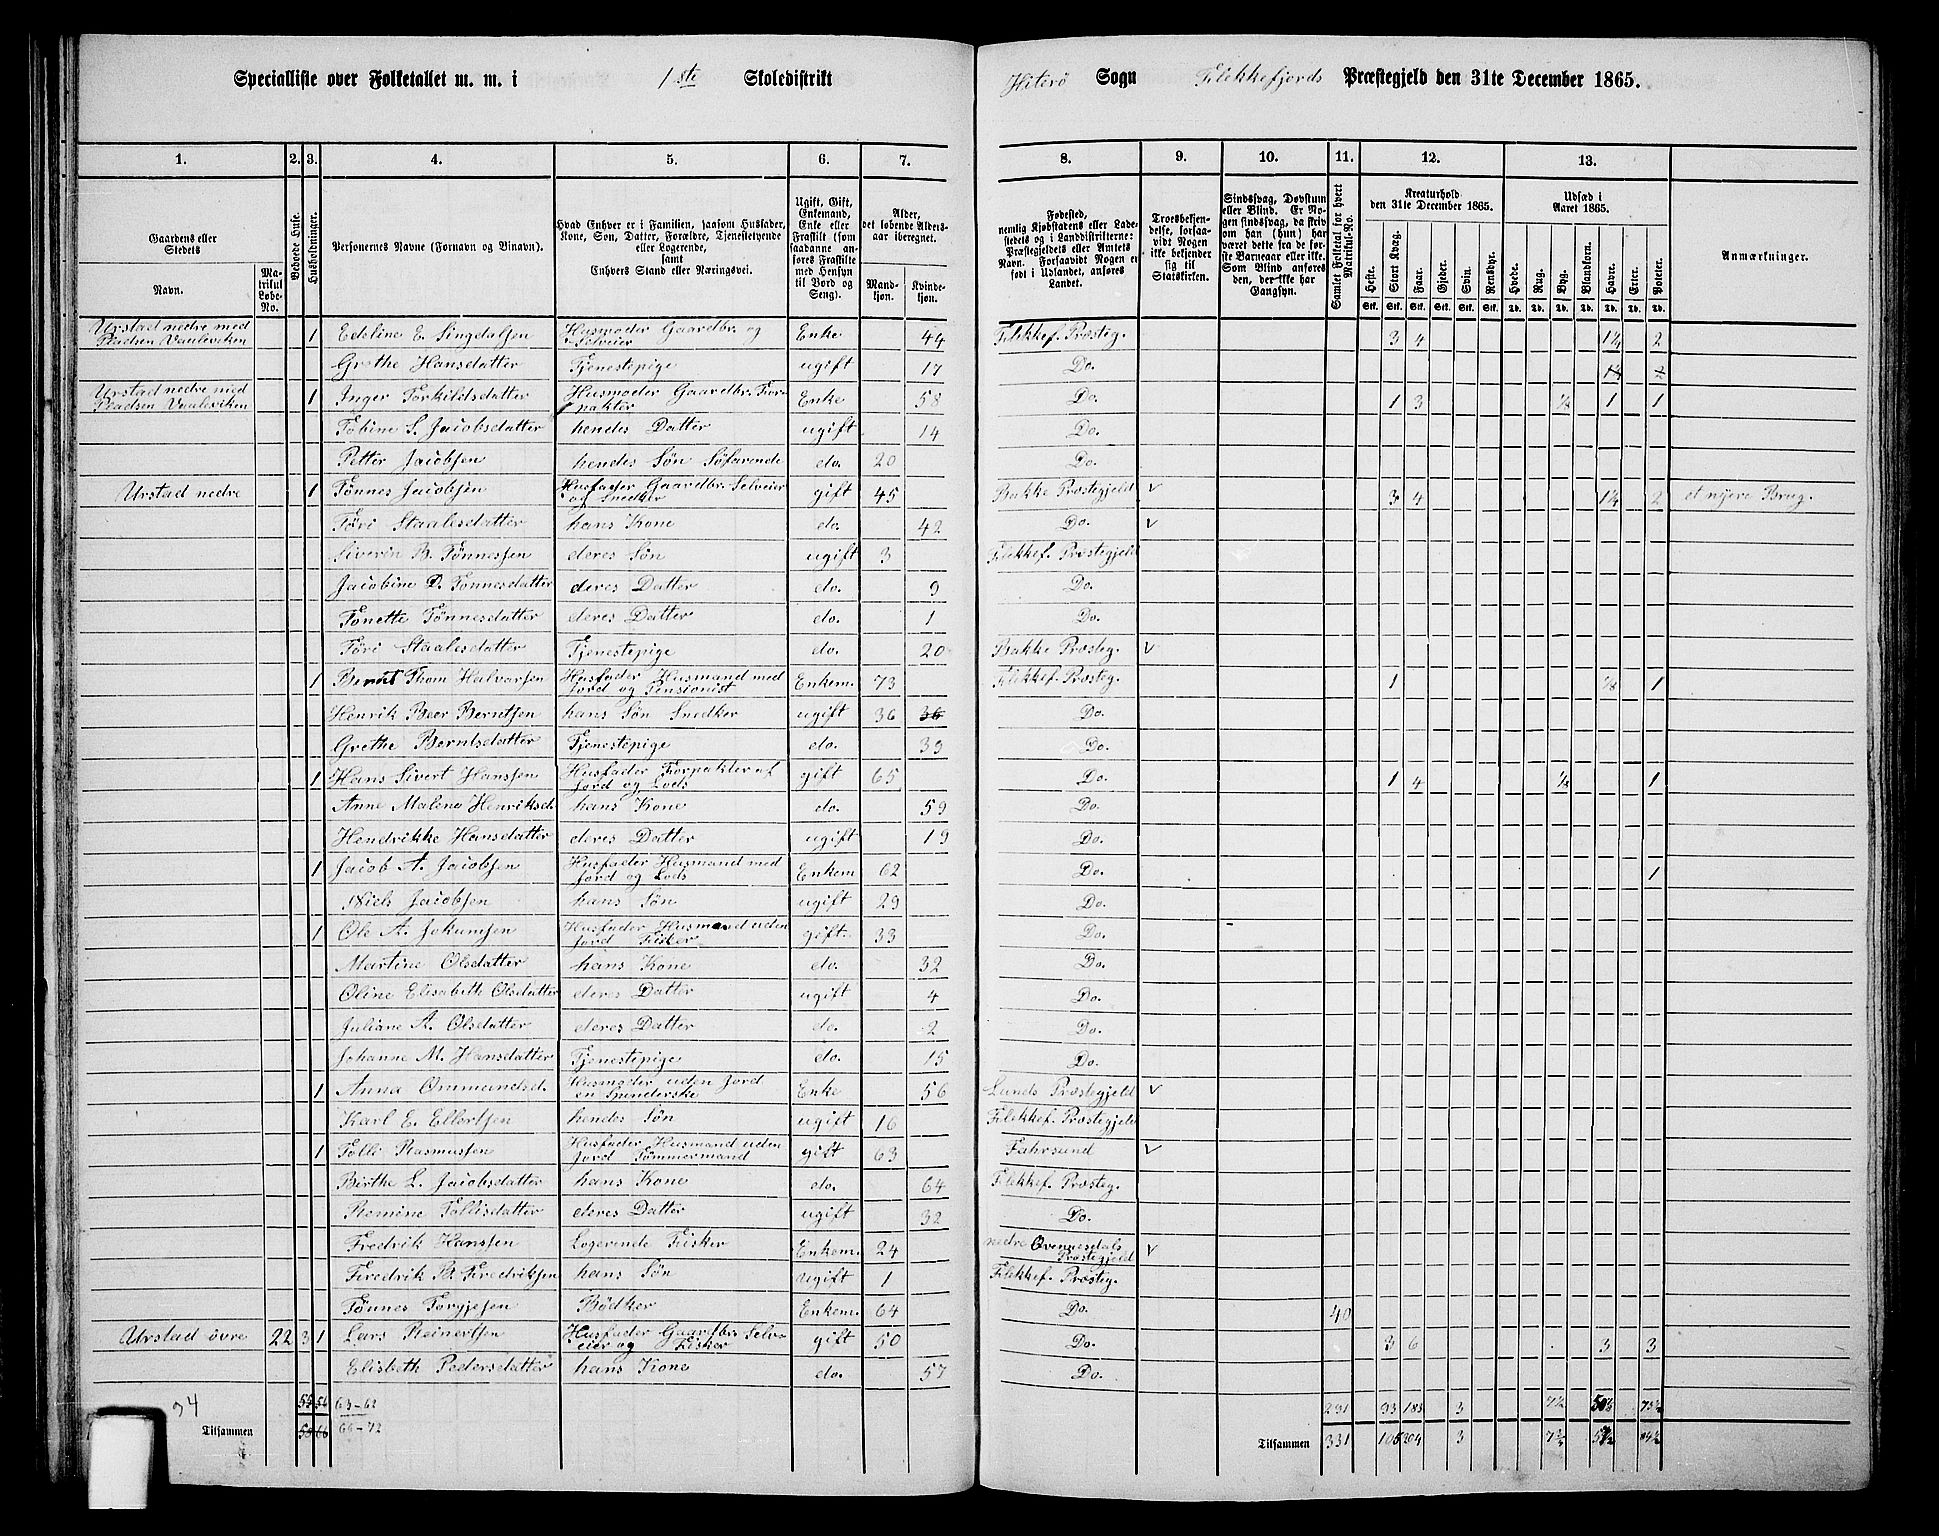 Specialliste over Folketallet m. m. i 1ste Skoledistrikt Hiterö Sogn Flekkefjords Præstegjeld den 31te December 1865.
1. 2. 3. 4. 5. 6. 7. 8. 9. 10. 11. 12. 13.
Gaardens eller Stedets Navn. Matrikul Løbe-No.
Beboede Huse.
Husholdninger.
Personernes Navne (Fornavn og Binavn).
Hvad Enhver er i Familien, saasom Husfader, Kone, Søn, Datter, Forældre, Tjenestetyende eller Logerende, samt Enhvers Stand eller Næringsvei.
Ugift, Gift, Enkemand, Enke eller Fraskilt (som saadanne anføres Fraskilte med Hensyn til Bord og Seng).
Alder, det løbende Aldersaar iberegnet. Mandkjøn. Kvindekjøn.
Fødested, nemlig Kjøbstadens eller Ladestedets og i Landdistrikterne: Præstegjeldets eller Amtets Navn. Forsaavidt Nogen er født i Udlandet, anføres Landet.
Troesbekjendelse, forsaavidt Nogen ikke bekjender sig til Statskirken.
Sindssvag, Døvstum eller Blind. Er Nogen sindssvag, da skrives om han (hun) har været dette fra de første Barneaar eller ikke. Som Blind anføres den, der ikke har Gangsyn.
Samlet Folketal for hvert Matrikul-No.
Kreaturhold den 31te December 1865. Heste. Stort Kvæg. Faar. Gjeder. Svin. Rensdyr.
Udsæd i Aaret 1865. Hvede. Rug. Byg. Blandkorn. Havre. Erter. Poteter.
Anmærkninger.
Urstad nedre med Pladsen Vauleviken 1 Edeline E. Lingdalsen Husmoder Gaardbr. og Selveier Enke 44 Flekkef. Præsteg. 3 4 1¼ 2
Grethe Hansdatter Tjenestepige ugift 17 Do.
Urstad nedre med Pladsen Vauleviken 1 Inger Torkildsdatter Husmoder Gaardbr. Forpakter Enke 58 Do. 1 3 ⅛ 1 1
Tobine S. Jacobsdatter hendes Datter ugift 14 Do.
Petter Jacobsen hendes Søn Søfarende do. 20 Do.
Urstad nedre 1 Tønnes Jacobsen Husfader Gaardbr. Selveier og Snedker gift 45 Bakke Præstegjeld v 3 4 1¼ 2 et nyere Brug.
Töri Staalesdatter hans Kone do. 42 Do. v
Siverin B. Tønnessen deres Søn ugift 3 Flekkef. Præstegjeld
Jacobine D. Tønnesdatter deres Datter do. 9 Do.
Tonette Tønnesdatter deres Datter do. 1 Do.
Töri Staalesdatter Tjenestepige do. 20 Bakke Præsteg. v
1 Bernt Thom Halvorsen Husfader Husmand med Jord og Pensionist Enkem. 73 Flekkef. Præsteg. 1 ⅛ 1
Henrik Beer Berntsen hans Søn Snedker ugift 36 36 Do.
Grethe Berntsdatter Tjenestepige do. 39 Do.
1 Hans Sivert Hanssen Husfader Forpakter af Jord og Lods gift 65 Do. 1 4 ⅛ 1
Anne Malene Henriksd. hans Kone do. 59 Do.
Hendrikke Hansdatter deres Datter ugift 19 Do.
1 Jacob A. Jacobsen Husfader Husmand med Jord og Lods Enkem 62 Do. 1
Niels Jacobsen hans Søn ugift 29 Do.
1 Ole A. Jokumsen Husfader Husmand uden Jord Fisker gift. 33 Do.
Martine Olsdatter hans Kone do. 32 Do.
Oline Elisabeth Olsdatter deres Datter ugift 4 Do.
Juliane A. Olsdatter deres Datter do. 2 Do.
Johanne M. Hansdatter Tjenestepige do. 15 Do.
1 Anna Ommundsd. Husmoder uden Jord en Spinderske Enke 56 Lunds Præstegjeld v
Karl E. Ellertsen hendes Søn ugift 16 Flekkef. Præstegjeld
1 Tolli Rasmussen Husfader Husmand uden Jord Tømmermand gift 63 Fahrsund v
Birthe L. Jacobsdatter hans Kone do. 64 Flekkef. Præsteg.
Remine Tollisdatter deres Datter ugift 32 Do.
Fredrik Hanssen Logerende Fisker Enkem. 24 nedre Qvinnesdals Præstegjeld v
Fredrik B. Fredriksen hans Søn ugift 1 Flekkef. Præsteg.
Tønnes Torgjesen Bödker Enkem. 64 Do. 40
Urstad övre 22 3 1 Lars Reinertsen Husfader Gaardbr. Selveier og Fisker gift 50 Do. 3 6 3 3
Elisbeth Pedersdatter hans Kone do. 57 Do.
63-62 291 3
Tilsammen 66-72 Tilsammen 331 3